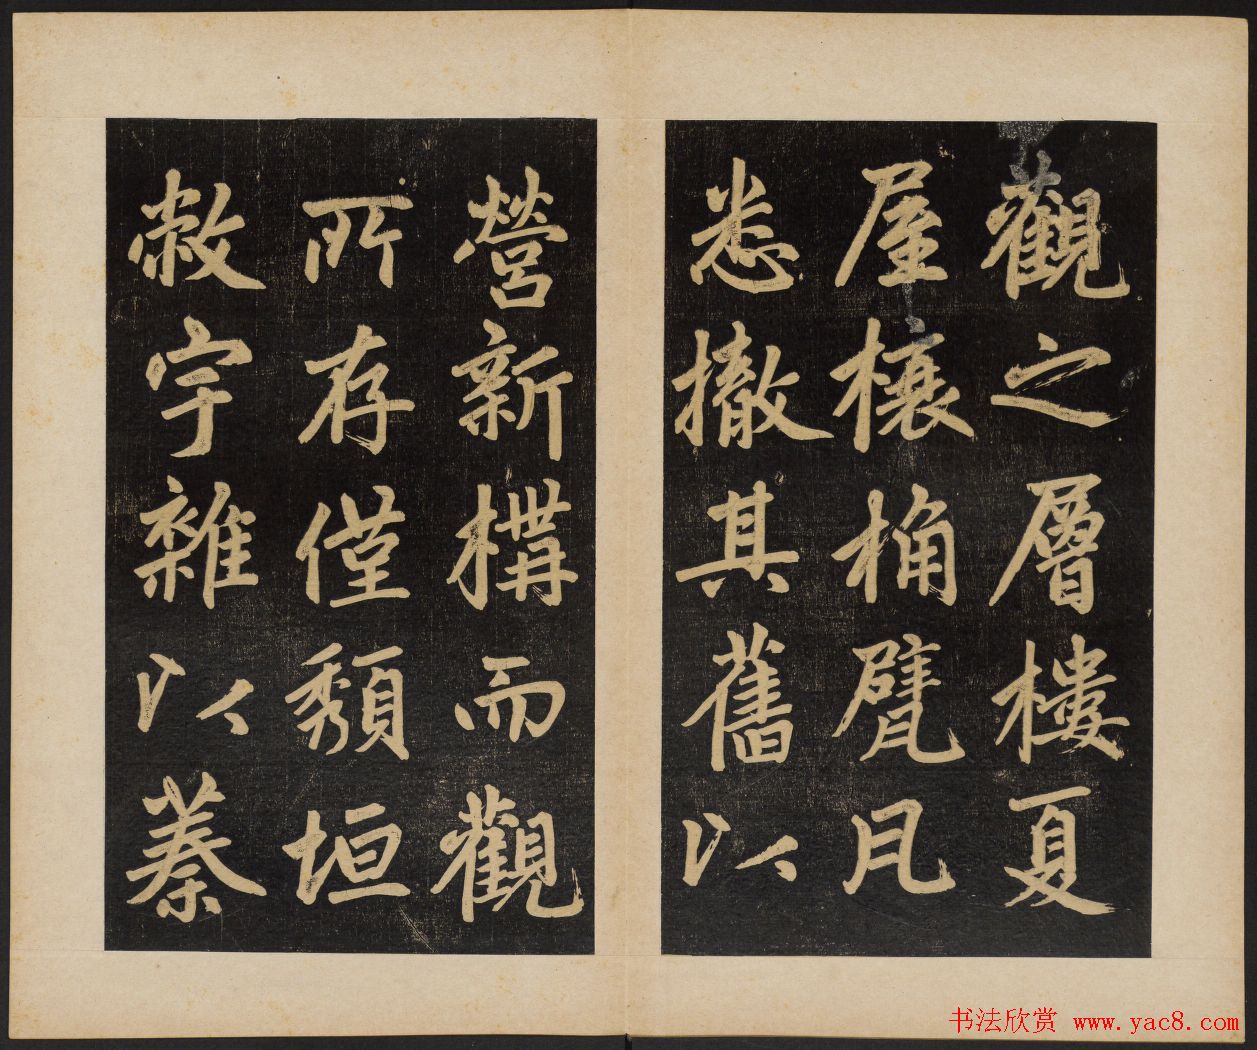 觀之層樓夏
屋榱桷甓凡
悉撤其舊以
營新構而觀
所存僅頽垣
敝宇雜以蓁
书法欣赏 www.yac8.com